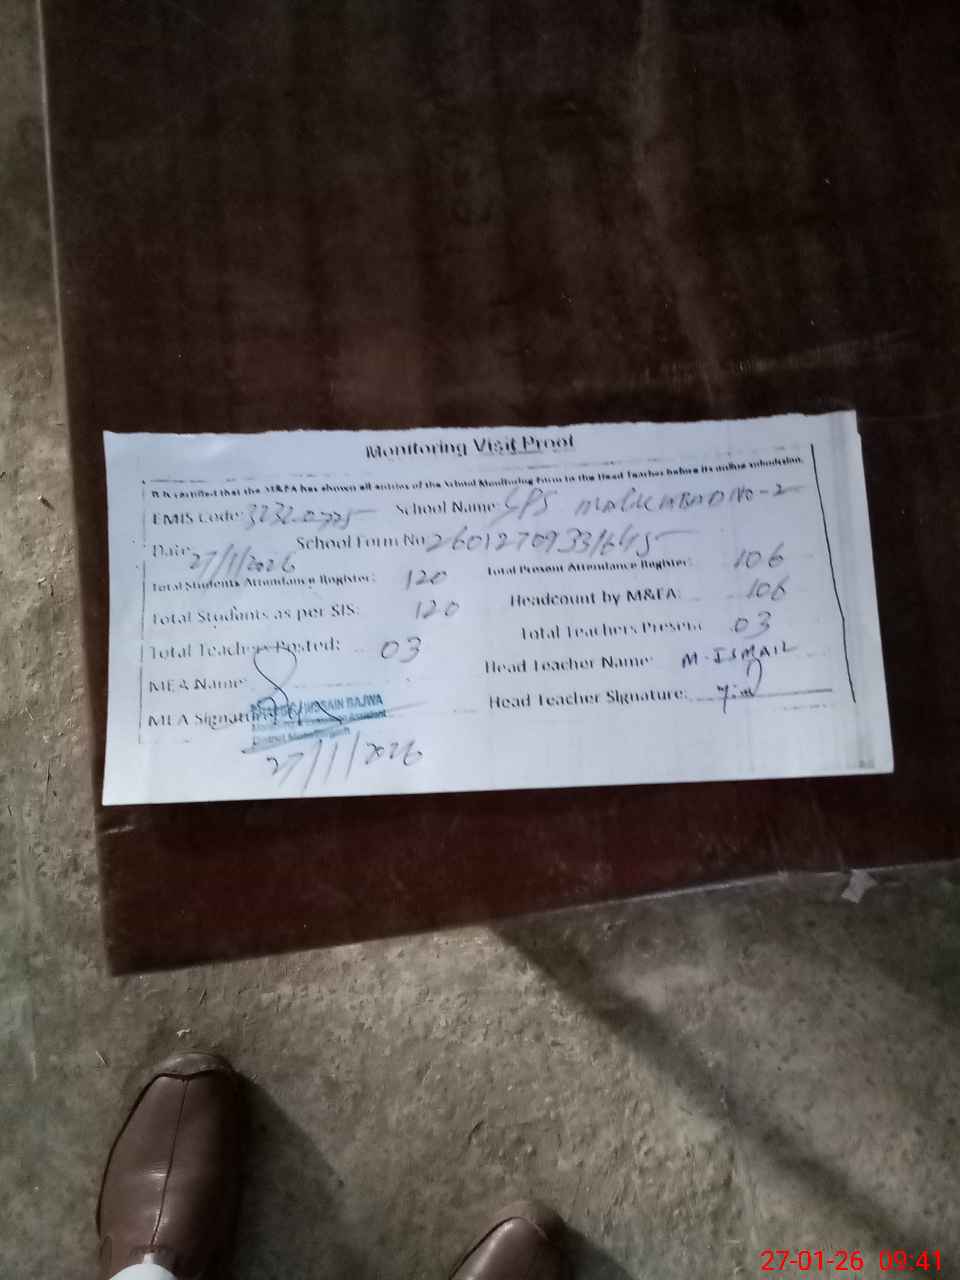 Monitoring Visit Proof
It is certified that the M&EA has shown all entries of the School Monitoring Form to the Head Teacher before its online submission.
EMIS Code: School Name: GPS NO-2
Date: 27/1/2026 School Form No:
Total Students Attendance Register: 120 Total Present Attendance Register: 106
Total Students as per SIS: 120 Headcount by M&EA: 106
Total Teachers Posted: 03 Total Teachers Present 03
MEA Name: Head Teacher Name: M. ISMAIL
MEA Signature Head Teacher Signature:
HUSSAIN BAJWA
Assistant
District
27/1/2026
27-01-26 09:41